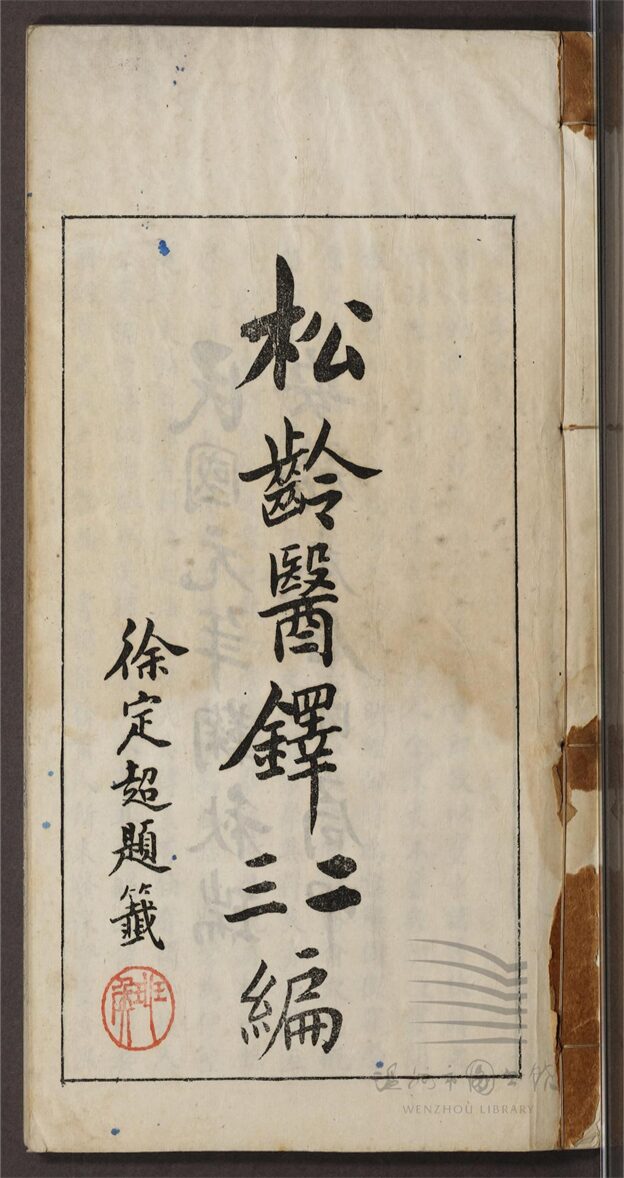 松齡醫鐸二三編
徐定超題籤
温州市图书馆
WENZHOU LIBRARY